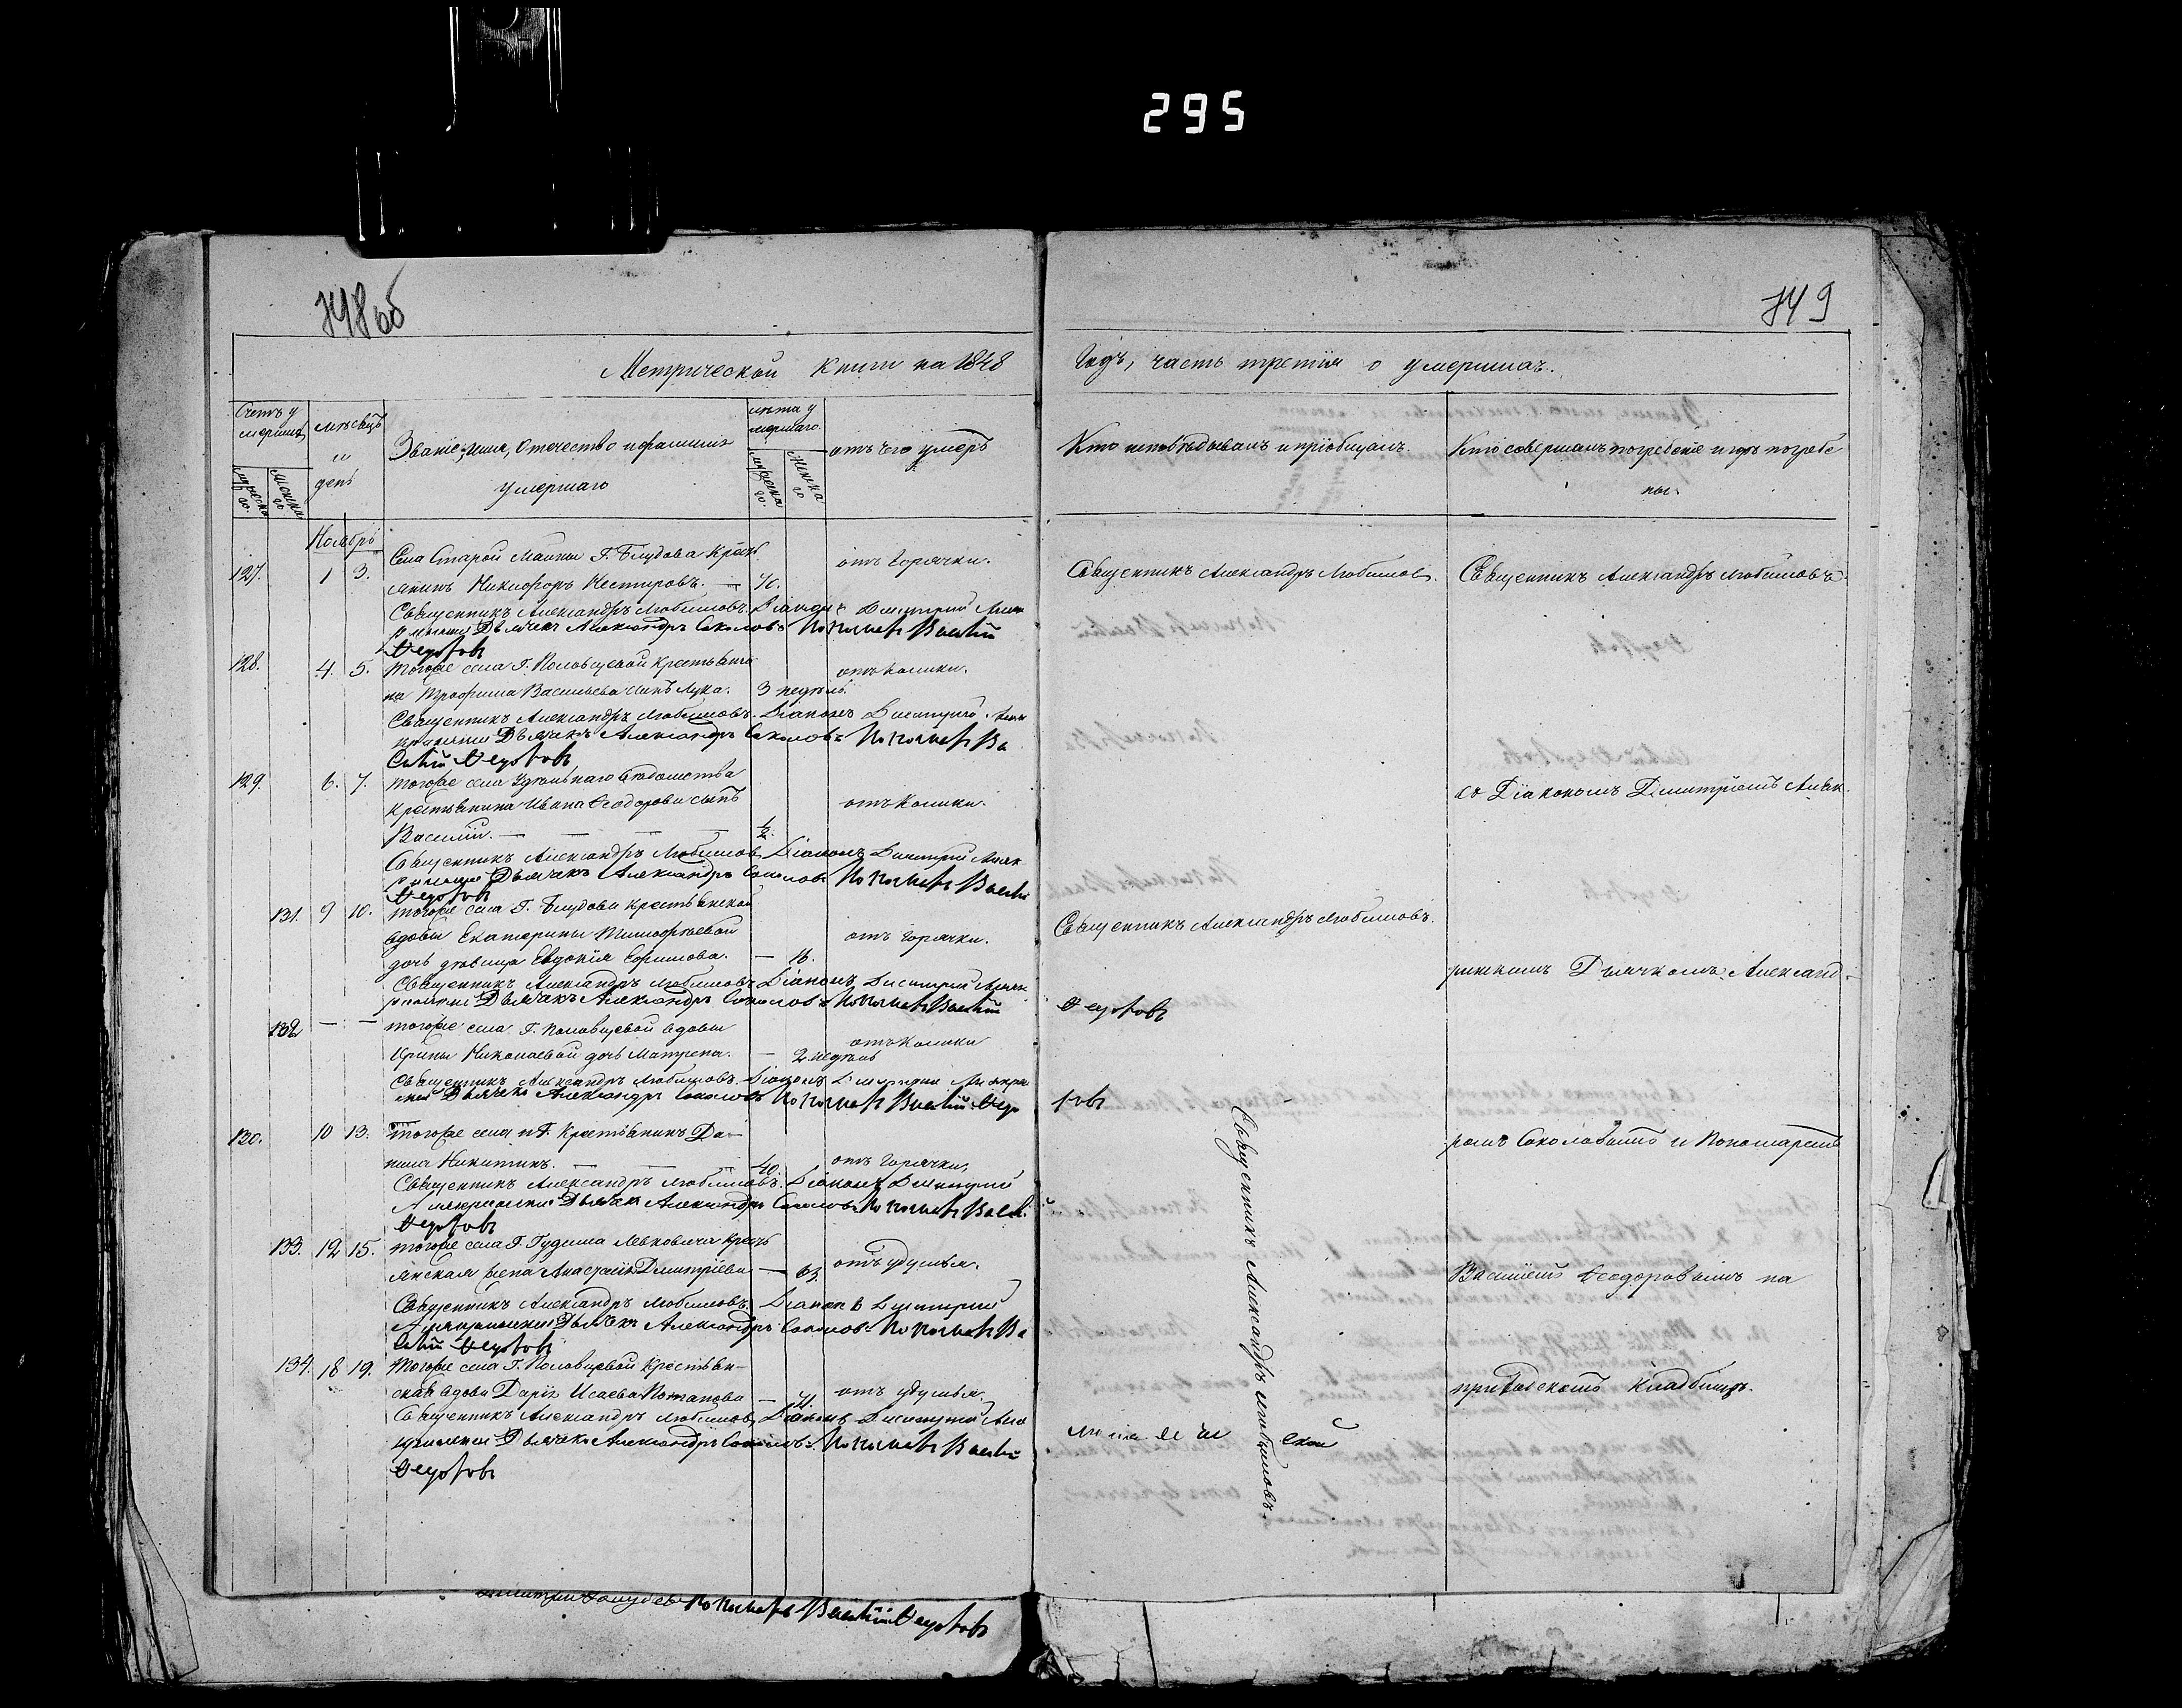 295
748 об
749
Метрической книги на 1848
Годъ, часть третія о умершихъ.
Счетъ у
мершихъ
мѣсяцъ
и
день
Званіе, имя, отечество и фамилія
умершаго
лѣта у
мершаго
отъ чего умеръ
Кто исповѣдывалъ и пріобщалъ.
Кто совершалъ погребеніе и гдѣ погребе
ны.
мужеска
го.
женска
го
мужеска
го.
женска
го
Ноябрь
Села Старой Майны Г. Блудова крестъ
отъ горячки.
127. 1 3.
янинъ Никифоръ Нестеровъ. — 70.
Священникъ Александръ Любимовъ.
Священникъ Александръ Любимовъ
Священникъ Александръ Любимовъ. Діаконъ Димитрій
Дьячекъ Александръ Соколовъ Пономарь Василій
Федотовъ
128. 4. 5. тогоже села Г. Половцевой крестьяни
отъ колики.
на Трофима Васильева сынъ Лука. 3 недѣль
Священникъ Александръ Любимовъ. Діаконъ Димитрій
Дьячекъ Александръ Соколовъ Пономарь Ва
силій Федотовъ
129. 6. 7. тогоже села Удѣльнаго вѣдомства
крестьянина Ивана Ѳеодорова сынъ
отъ колики.
съ Діакономъ Димитріемъ
Василій. — ½.
Священникъ Александръ Любимовъ Діаконъ Димитрій
Дьячекъ Александръ Соколовъ Пономарь Василій
Федотовъ
131. 9 10. тогоже села Г. Блудова крестьянской
вдовы Екатерины Тимофѣевой
отъ горячки.
Священникъ Александръ Любимовъ.
дочь дѣвица Евдокія Ефимова. — 18.
Дьячкомъ Александ-
Священникъ Александръ Любимовъ Діаконъ Димитрій
Дьячекъ Александръ Соколовъ Пономарь Василій
Федотовъ
132 — — тогоже села Г. Половцевой вдовы
отъ колики
Ирины Николаевой дочь Матрена. — 2 недѣль
Священникъ Александръ Любимовъ. Діаконъ Димитрій
Дьячекъ Александръ Соколовъ Пономарь Василій Федо
товъ
130. 10 13. тогоже села и Г. крестьянинъ Да-
ромъ Соколовымъ и Пономаремъ
нила Никитинъ. — 40.
отъ горячки,
Священникъ Александръ Любимовъ. Діаконъ Димитрій
Дьячекъ Александръ Соколовъ Пономарь Василій
Федотовъ
133. 12 15. тогоже села Г. Левковича кресть
янская жена Анастасія Димитріева — 63.
отъ удушья.
Василіемъ Ѳеодоровымъ на
Священникъ Александръ Любимовъ. Діаконъ Димитрій
Дьячекъ Александръ Соколовъ Пономарь Ва
силій Федотовъ
134. 18 19. тогоже села Г. Половцевой крестьян-
ская вдова Дарія Исаева Потапова — 71.
отъ удушья.
приходскомъ кладбищѣ.
Священникъ Александръ Любимовъ Діаконъ Димитрій
Дьячекъ Александръ Соколовъ Пономарь Василій
Федотовъ
Священникъ Александръ Любимовъ.
Пономарь Василій Федотовъ